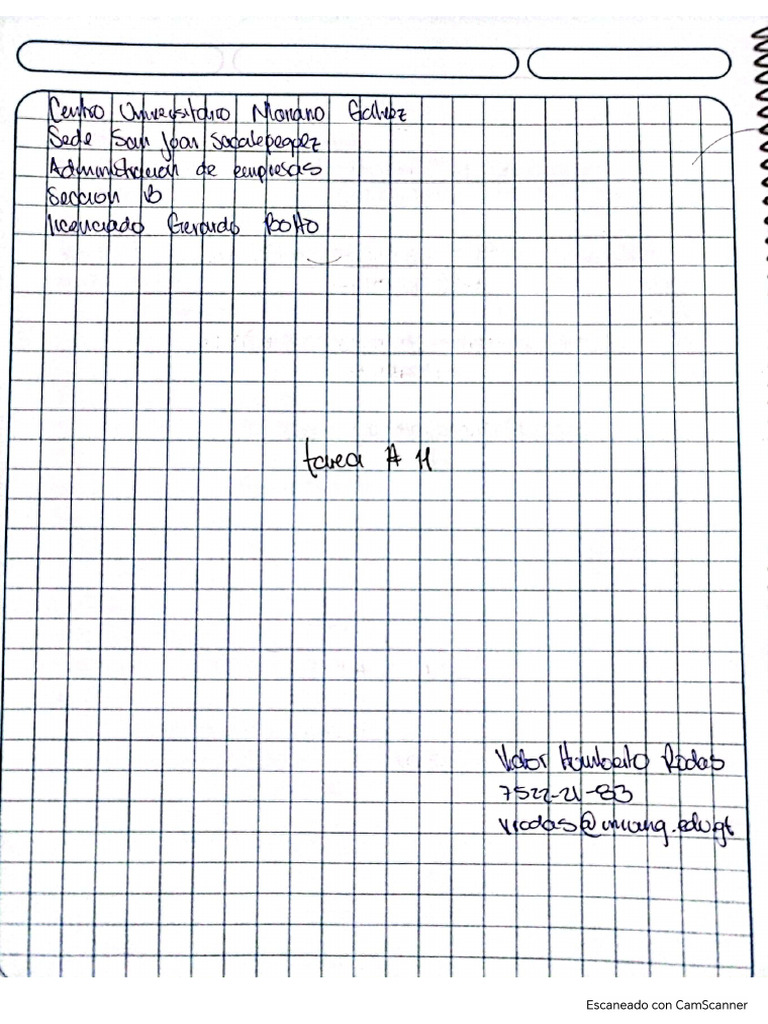 Centro Universitario Mariano Galvez
Sede San Juan Sacatepequez
Administracion de empresas
Seccion B
licenciado Gerardo
tarea # 11
Victor Humberto Rodas
7522-21-83
Escaneado con CamScanner